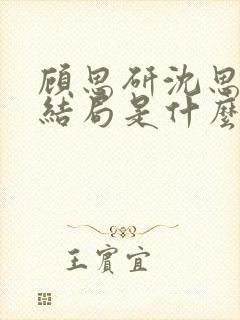 顾思研沈思
結局是什麼
王賓宜